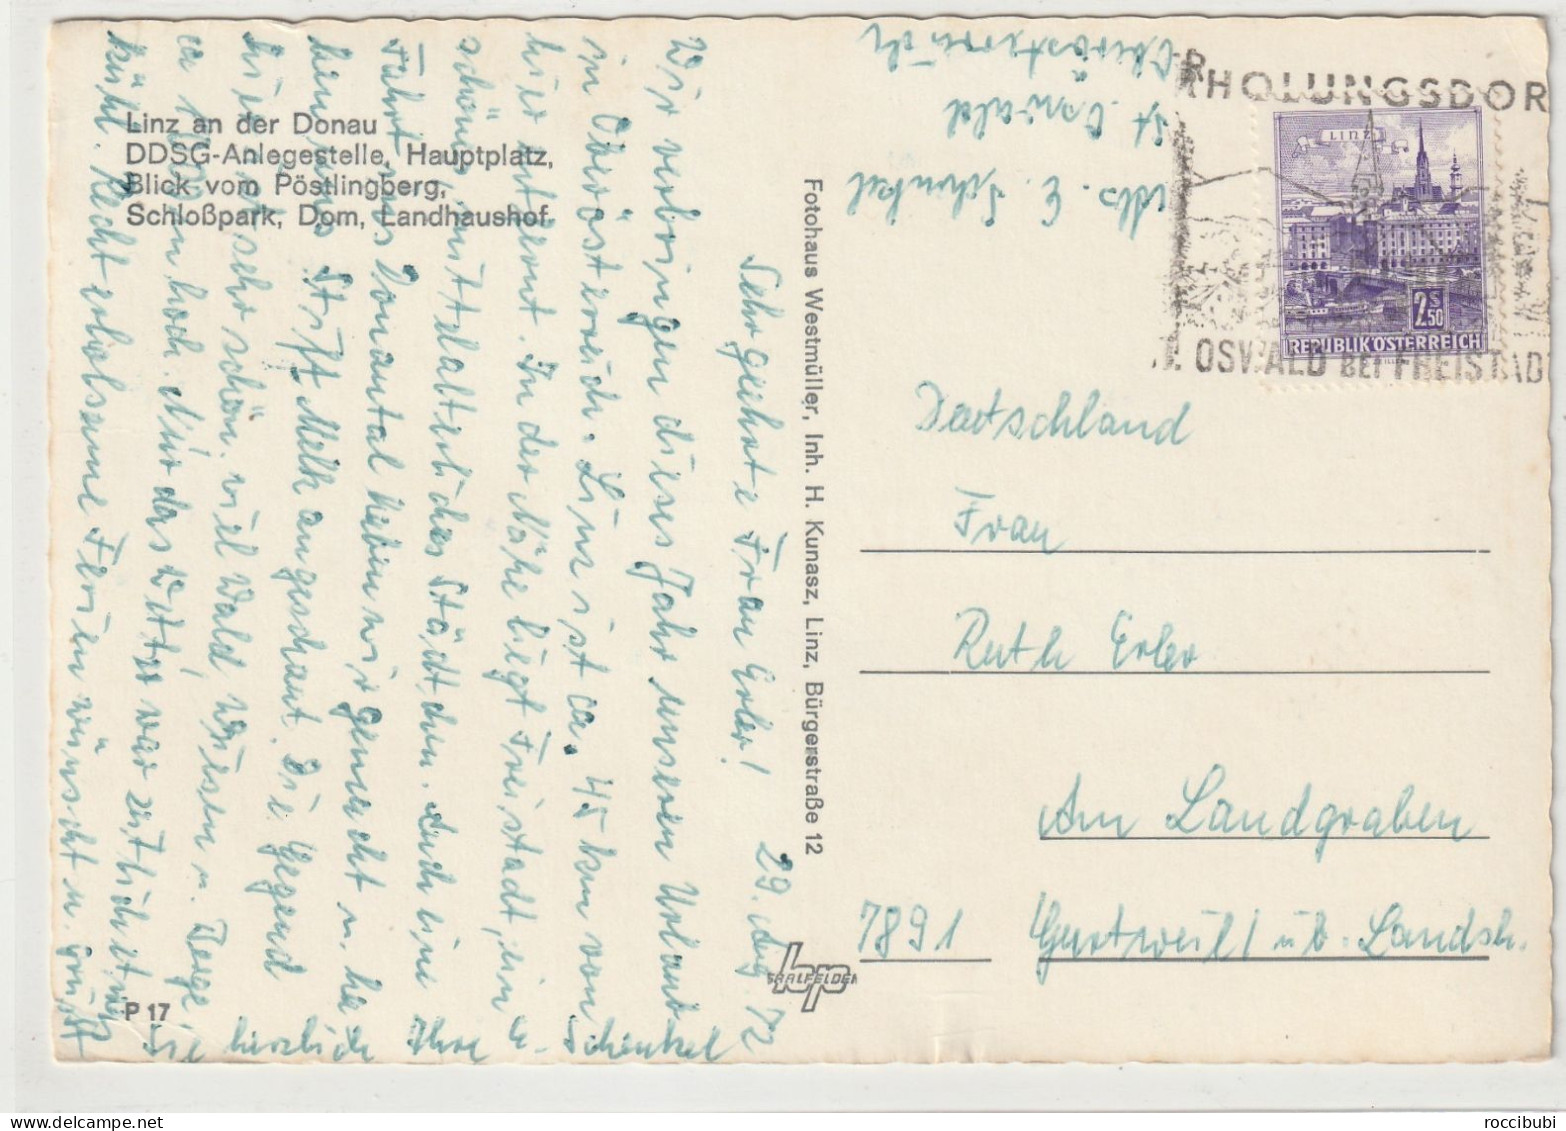 Linz an der Donau
DDSG-Anlegestelle, Hauptplatz,
Blick vom Pöstlingberg,
Schloßpark, Dom, Landhaushof
P 17
29. Aug 72
Sehr geehrte Frau Erler!
Wir verbringen dieses Jahr unseren Urlaub
in Oberösterreich. Linz ist ca. 45 km von
hier entfernt. In der Nähe liegt Freistadt, ein
schönes, mittelalterliches Städtchen. Auch eine
Fahrt ins Donautal haben wir gemacht u. ha-
ben uns Stift Melk angeschaut. Die Gegend
hier ist sehr schön, viel Wald, Wiesen u. Berge
ca 1000 m hoch. Nur das Wetter war ziemlich
kühl. Recht erholsame Ferien wünscht u. grüßt
Sie herzlich Ihre E. Schenkel
Fotohaus Westmüller, Inh. H. Kunasz, Linz, Bürgerstraße 12
hp
SAALFELDEN
E. Schenkel
St. Oswald
Oberösterreich
RHOLUNGSDOR
OSWALD BEI FREISTADT
LINZ
2.50 S
REPUBLIK ÖSTERREICH
Deutschland
Frau
Ruth Erler
Am Landgraben
7891 Gurtweil / üb. Landsh.